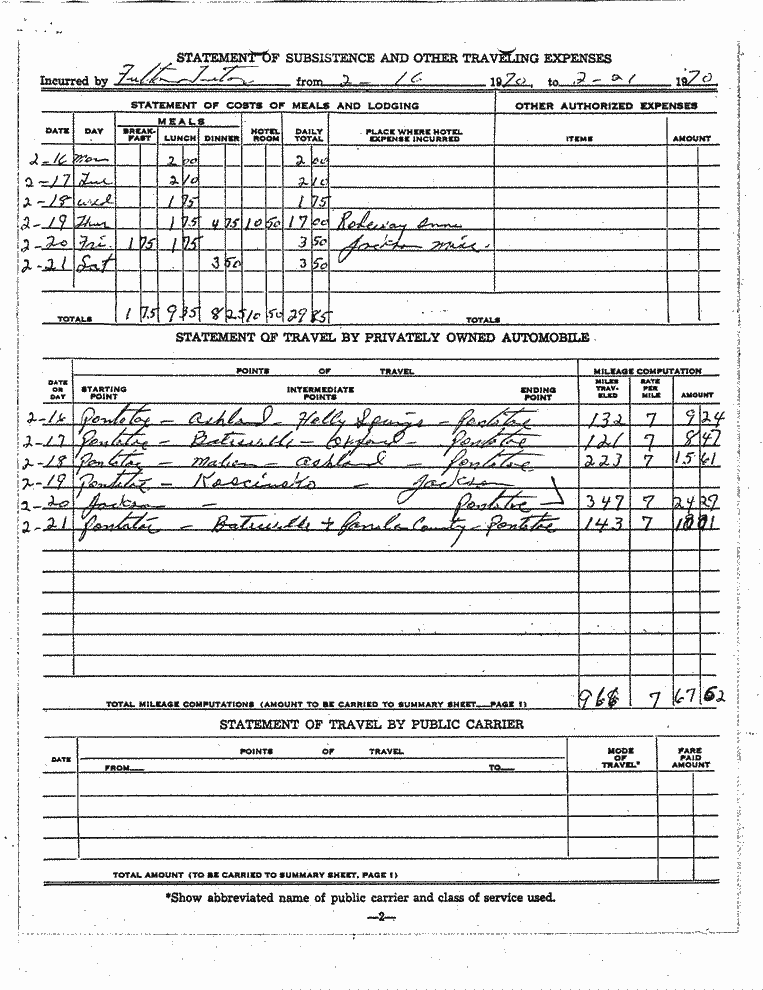 STATEMENT OF SUBSISTENCE AND OTHER TRAVELING EXPENSES
Incurred by Fulton Tutor from 2-16 1970, to 2-21 1970
STATEMENT OF COSTS OF MEALS AND LODGING OTHER AUTHORIZED EXPENSES
MEALS
DATE DAY BREAK-FAST LUNCH DINNER HOTEL ROOM DAILY TOTAL PLACE WHERE HOTEL EXPENSE INCURRED ITEMS AMOUNT
2-16 Mon 2 00 2 00
2-17 Tue 2 10 2 10
2-18 Wed 1 75 1 75
2-19 Thur 1 75 4 75 10 50 17 00 Rodeway Inn
2-20 Fri. 1 75 1 75 3 50 Jackson Miss.
2-21 Sat 3 50 3 50
TOTALS 1 75 9 35 8 25 10 50 29 85 TOTALS
STATEMENT OF TRAVEL BY PRIVATELY OWNED AUTOMOBILE
POINTS OF TRAVEL MILEAGE COMPUTATION
DATE OR DAY STARTING POINT INTERMEDIATE POINTS ENDING POINT MILES TRAV-ELED RATE PER MILE AMOUNT
2-16 Pontotoc - Ashland - Holly Springs - Pontotoc 132 7 9 24
2-17 Pontotoc - Batesville - Oxford - Pontotoc 121 7 8 47
2-18 Pontotoc - - Ashland - Pontotoc 223 7 15 61
2-19 Pontotoc - Kosciusko - Jackson
2-20 Jackson - Pontotoc - 347 7 24 29
2-21 Pontotoc - Batesville + Panola County - Pontotoc 143 7 10 01
TOTAL MILEAGE COMPUTATIONS (AMOUNT TO BE CARRIED TO SUMMARY SHEET—PAGE 1) 966 7 67 62
STATEMENT OF TRAVEL BY PUBLIC CARRIER
POINTS OF TRAVEL
DATE FROM— TO— MODE OF TRAVEL* FARE PAID AMOUNT
TOTAL AMOUNT (TO BE CARRIED TO SUMMARY SHEET, PAGE 1)
*Show abbreviated name of public carrier and class of service used.
—2—